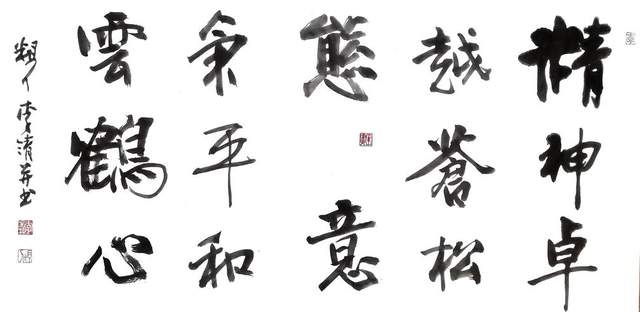 精神卓
越蒼松
態意
氣平和
雲鶴心
李清并书